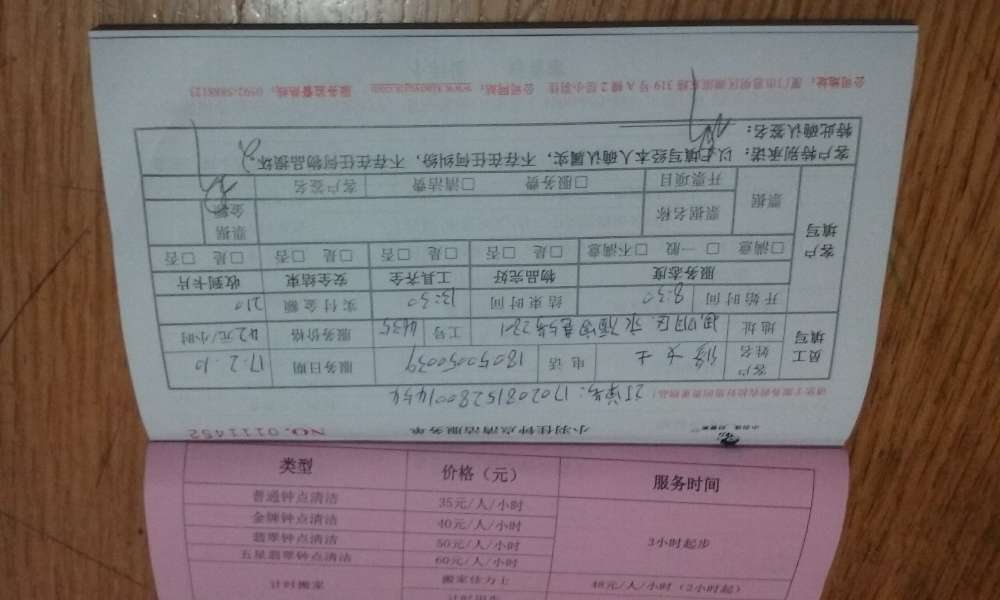 小羽佳 钟点清洁服务单 NO. 0111452
订单号：17020815280001454
请您于服务前收拾好您的贵重物品！
员工填写
客户姓名 女士 电话 18050050039 服务日期 17.2.10
地址 工号 4635 服务价格 42元/小时
开始时间 8:30 结束时间 13:30 实付金额 210
服务态度 物品完好 工具齐全 安全结束 收到卡片
客户填写
□满意 □一般 □不满意 □是 □否 □是 □否 □是 □否 □是 □否
票据 票据名称 票据金额
开票项目 □服务费 □清洁费 客户签名
客户特别承诺：以上填写经本人确认属实，不存在任何纠纷，不存在任何物品损坏。
特此确认签名：
公司网站： 服务监督热线：0592-5888123
类型 价格（元） 服务时间
普通钟点清洁 35元/人/小时
金牌钟点清洁 40元/人/小时
翡翠钟点清洁 50元/人/小时 3小时起步
五星翡翠钟点清洁 60元/人/小时
计时搬家 搬家佳力士 48元/人/小时（2小时起）